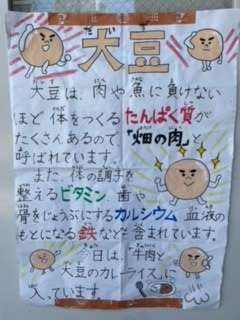 大豆
大豆は、肉や魚に負けない
ほど体をつくるたんぱく質が
たくさんあるので「畑の肉」と
呼ばれています。
また、体の調子を
整えるビタミン、歯や
骨をじょうぶにするカルシウム、血液の
もとになる鉄なども含まれています。
今日は、「牛肉と
大豆のカレーライス」に
入っています。